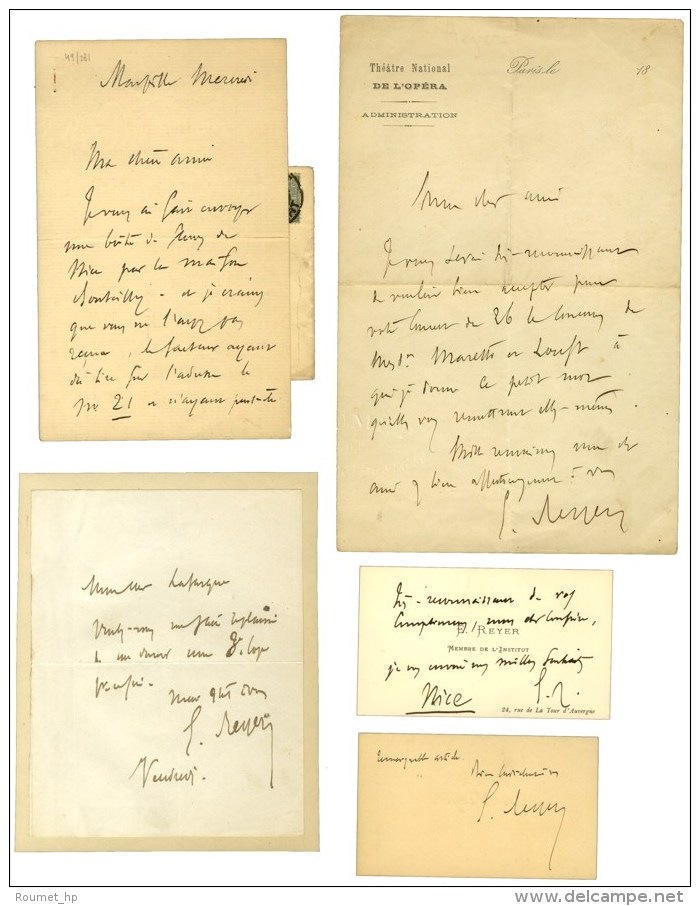 49/281
Marseille Mercredi
Ma chère amie
Je vous ai fait envoyer
une boîte de fleurs de
Nice par la maison
et je crains
que vous ne l'ayez pas
reçue, le facteur ayant
dû lire sur l'adresse le
No 21 et n'ayant
Théâtre National
DE L'OPÉRA
ADMINISTRATION
Paris, le 18
Mon cher ami
Je vous serai très-reconnaissant
de vouloir bien accepter pour
votre concert du 26 le concours de
Mesd. et à
qui je donne ce petit mot
qu'elles vous remettront elles-mêmes.
Mille remerciements mon cher
ami et bien affectueusement à vous
E. Reyer
Monsieur Lafargue
Voulez-vous me faire le plaisir
de me donner une loge
Mille
E. Reyer
Vendredi.
très-reconnaissant de vos
compliments, mon cher confrère,
E. REYER
MEMBRE DE L'INSTITUT
je vous envoie mes meilleurs souhaits
Nice E. R.
24, rue de La Tour d'Auvergne
Remarquable article.
Bien cordialement
E. Reyer
Roumet_hp
© delcampe.net